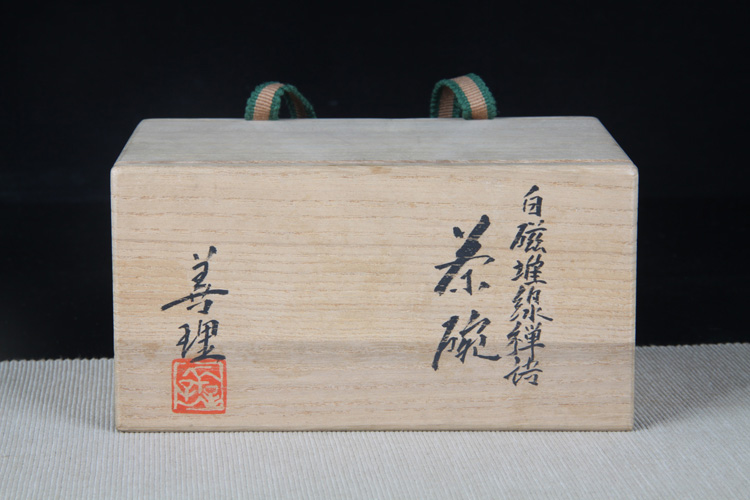 白磁堆線禅詩
茶碗
善理